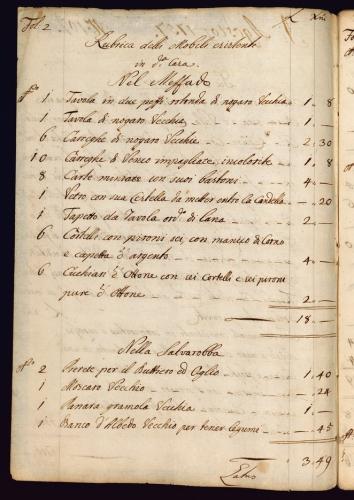 Fol. 2
Rubrica delli Mobili existenti
in d.a Casa.
Nel Mezzado
1 Tavola in due pezzi rotonda di nogara Vecchia 1 8
1 Tavola di nogara Vecchia 1
6 Careghe di nogara Vecchie 2 30
10 Careghe di Venco impagliate, incolorite 1 8
8 Carte miniate con suoi bastoni 4
1 Vetro con sua Cestella da metter entro la Candella 20
1 Tapetto da Tavola ord.o di Lana 2
6 Cortelli con pironi sei con manico di Corno
e capetta d'argento 4
6 Cuchiari d'Ottone con sei Cortelli e sei pironi
pure d'Ottone 2
18
Nella Salvarobba
2 Prerete per il Buttiero ed Oglio 1.40
1 Vecchio 24
1 Panara gramola Vecchia 1
1 Banco d'Albedo Vecchio per tener legumi 45
3.49
Latus